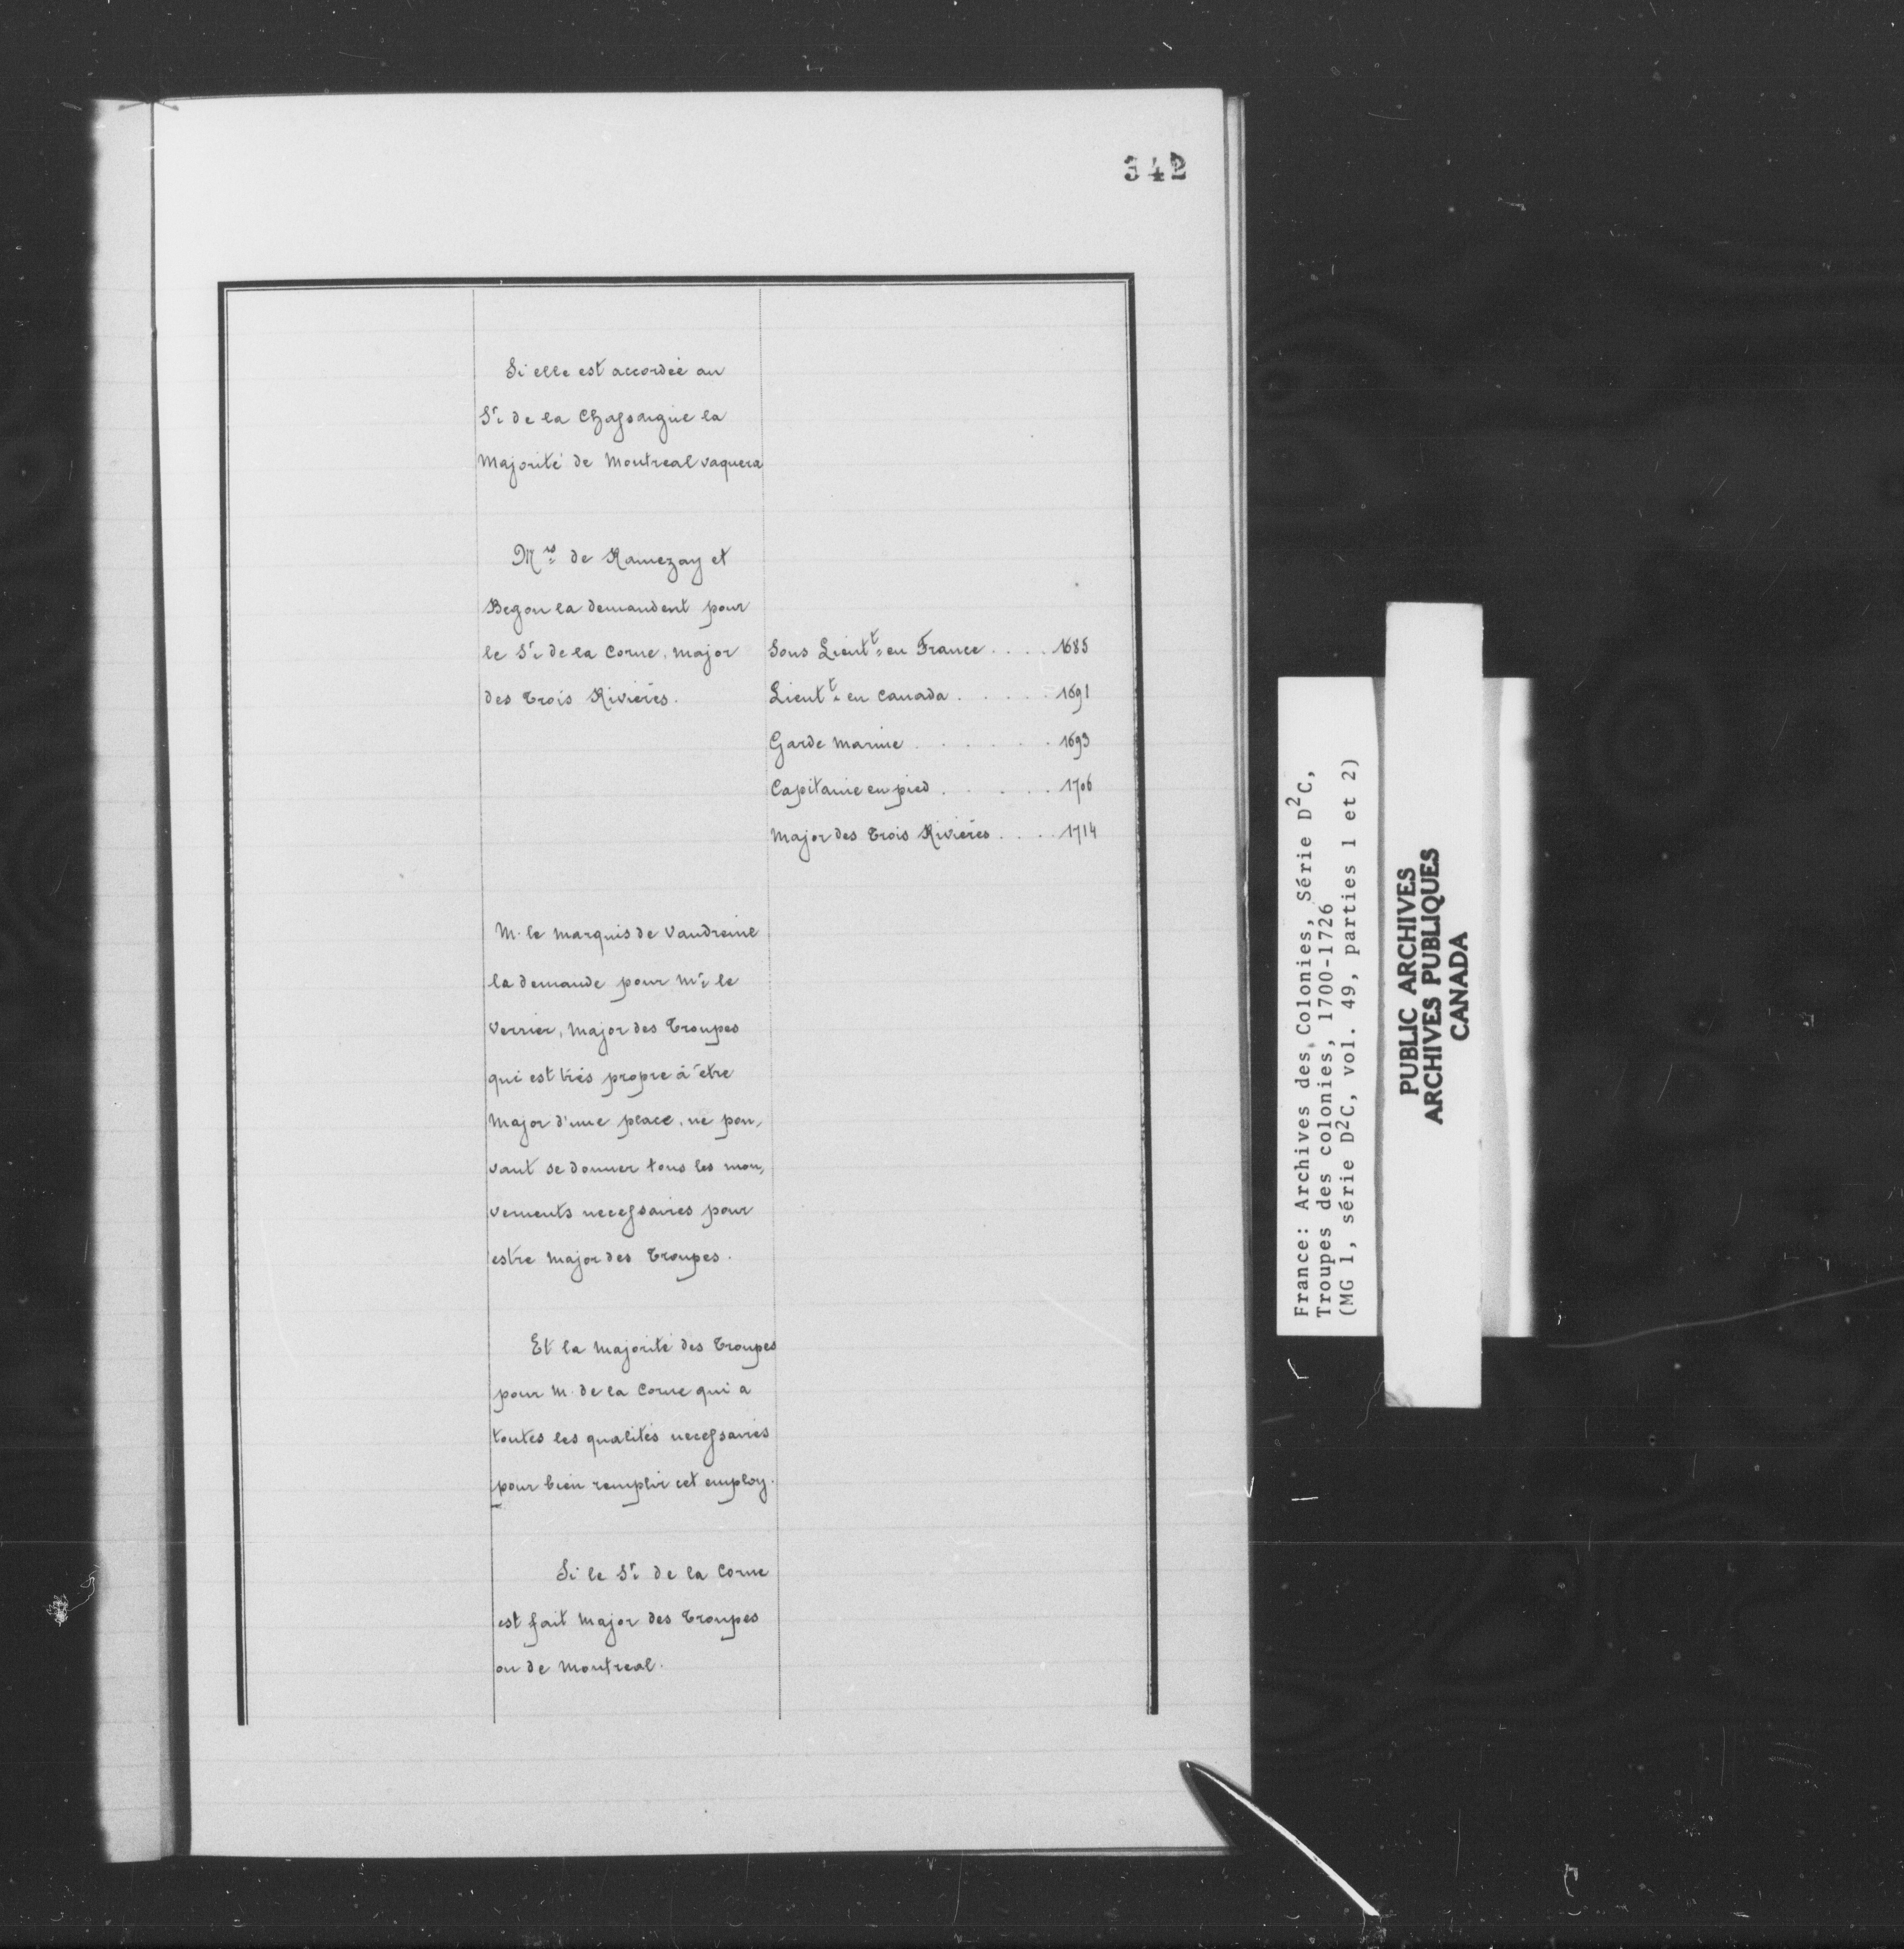 342
Si elle est accordée au
Sr de la Chassaigne la
Majorité de Montreal vaquera
Mrs de Ramezay et
Begon la demandent pour
le Sr de la Corne, Major
des Trois Rivières.
Sous Lieutt en France . . . . 1685
Lieutt en Canada . . . . . 1691
Garde Marine . . . . . . 1693
Capitaine en pied . . . . . 1706
Major des Trois Rivières . . . . 1714
M. le Marquis de Vaudreuil
la demande pour Mr le
Verrier, Major des Troupes
qui est très propre à être
Major d'une place, ne pou,
vant se donner tous les mou,
vements necessaires pour
estre Major des Troupes.
Et la Majorité des Troupes
pour M. de la Corne qui a
toutes les qualités necessaires
pour bien remplir cet employ.
Si le Sr de la Corne
est fait Major des Troupes
ou de Montreal.
France: Archives des Colonies, Série D2C,
Troupes des colonies, 1700-1726
(MG 1, série D2C, vol. 49, parties 1 et 2)
PUBLIC ARCHIVES
ARCHIVES PUBLIQUES
CANADA